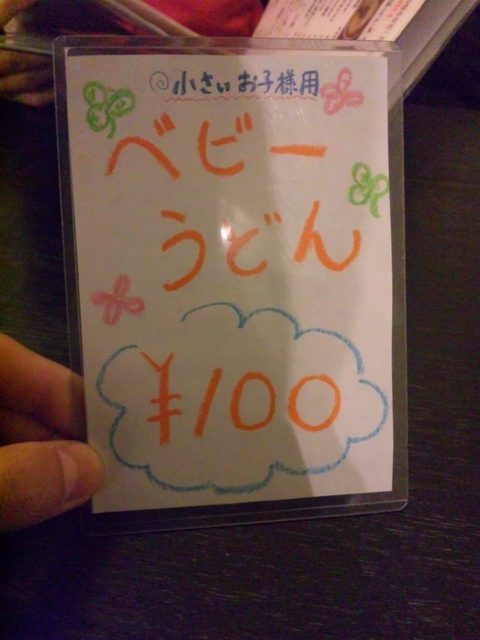 ◎小さいお子様用
ベビー
うどん
¥100